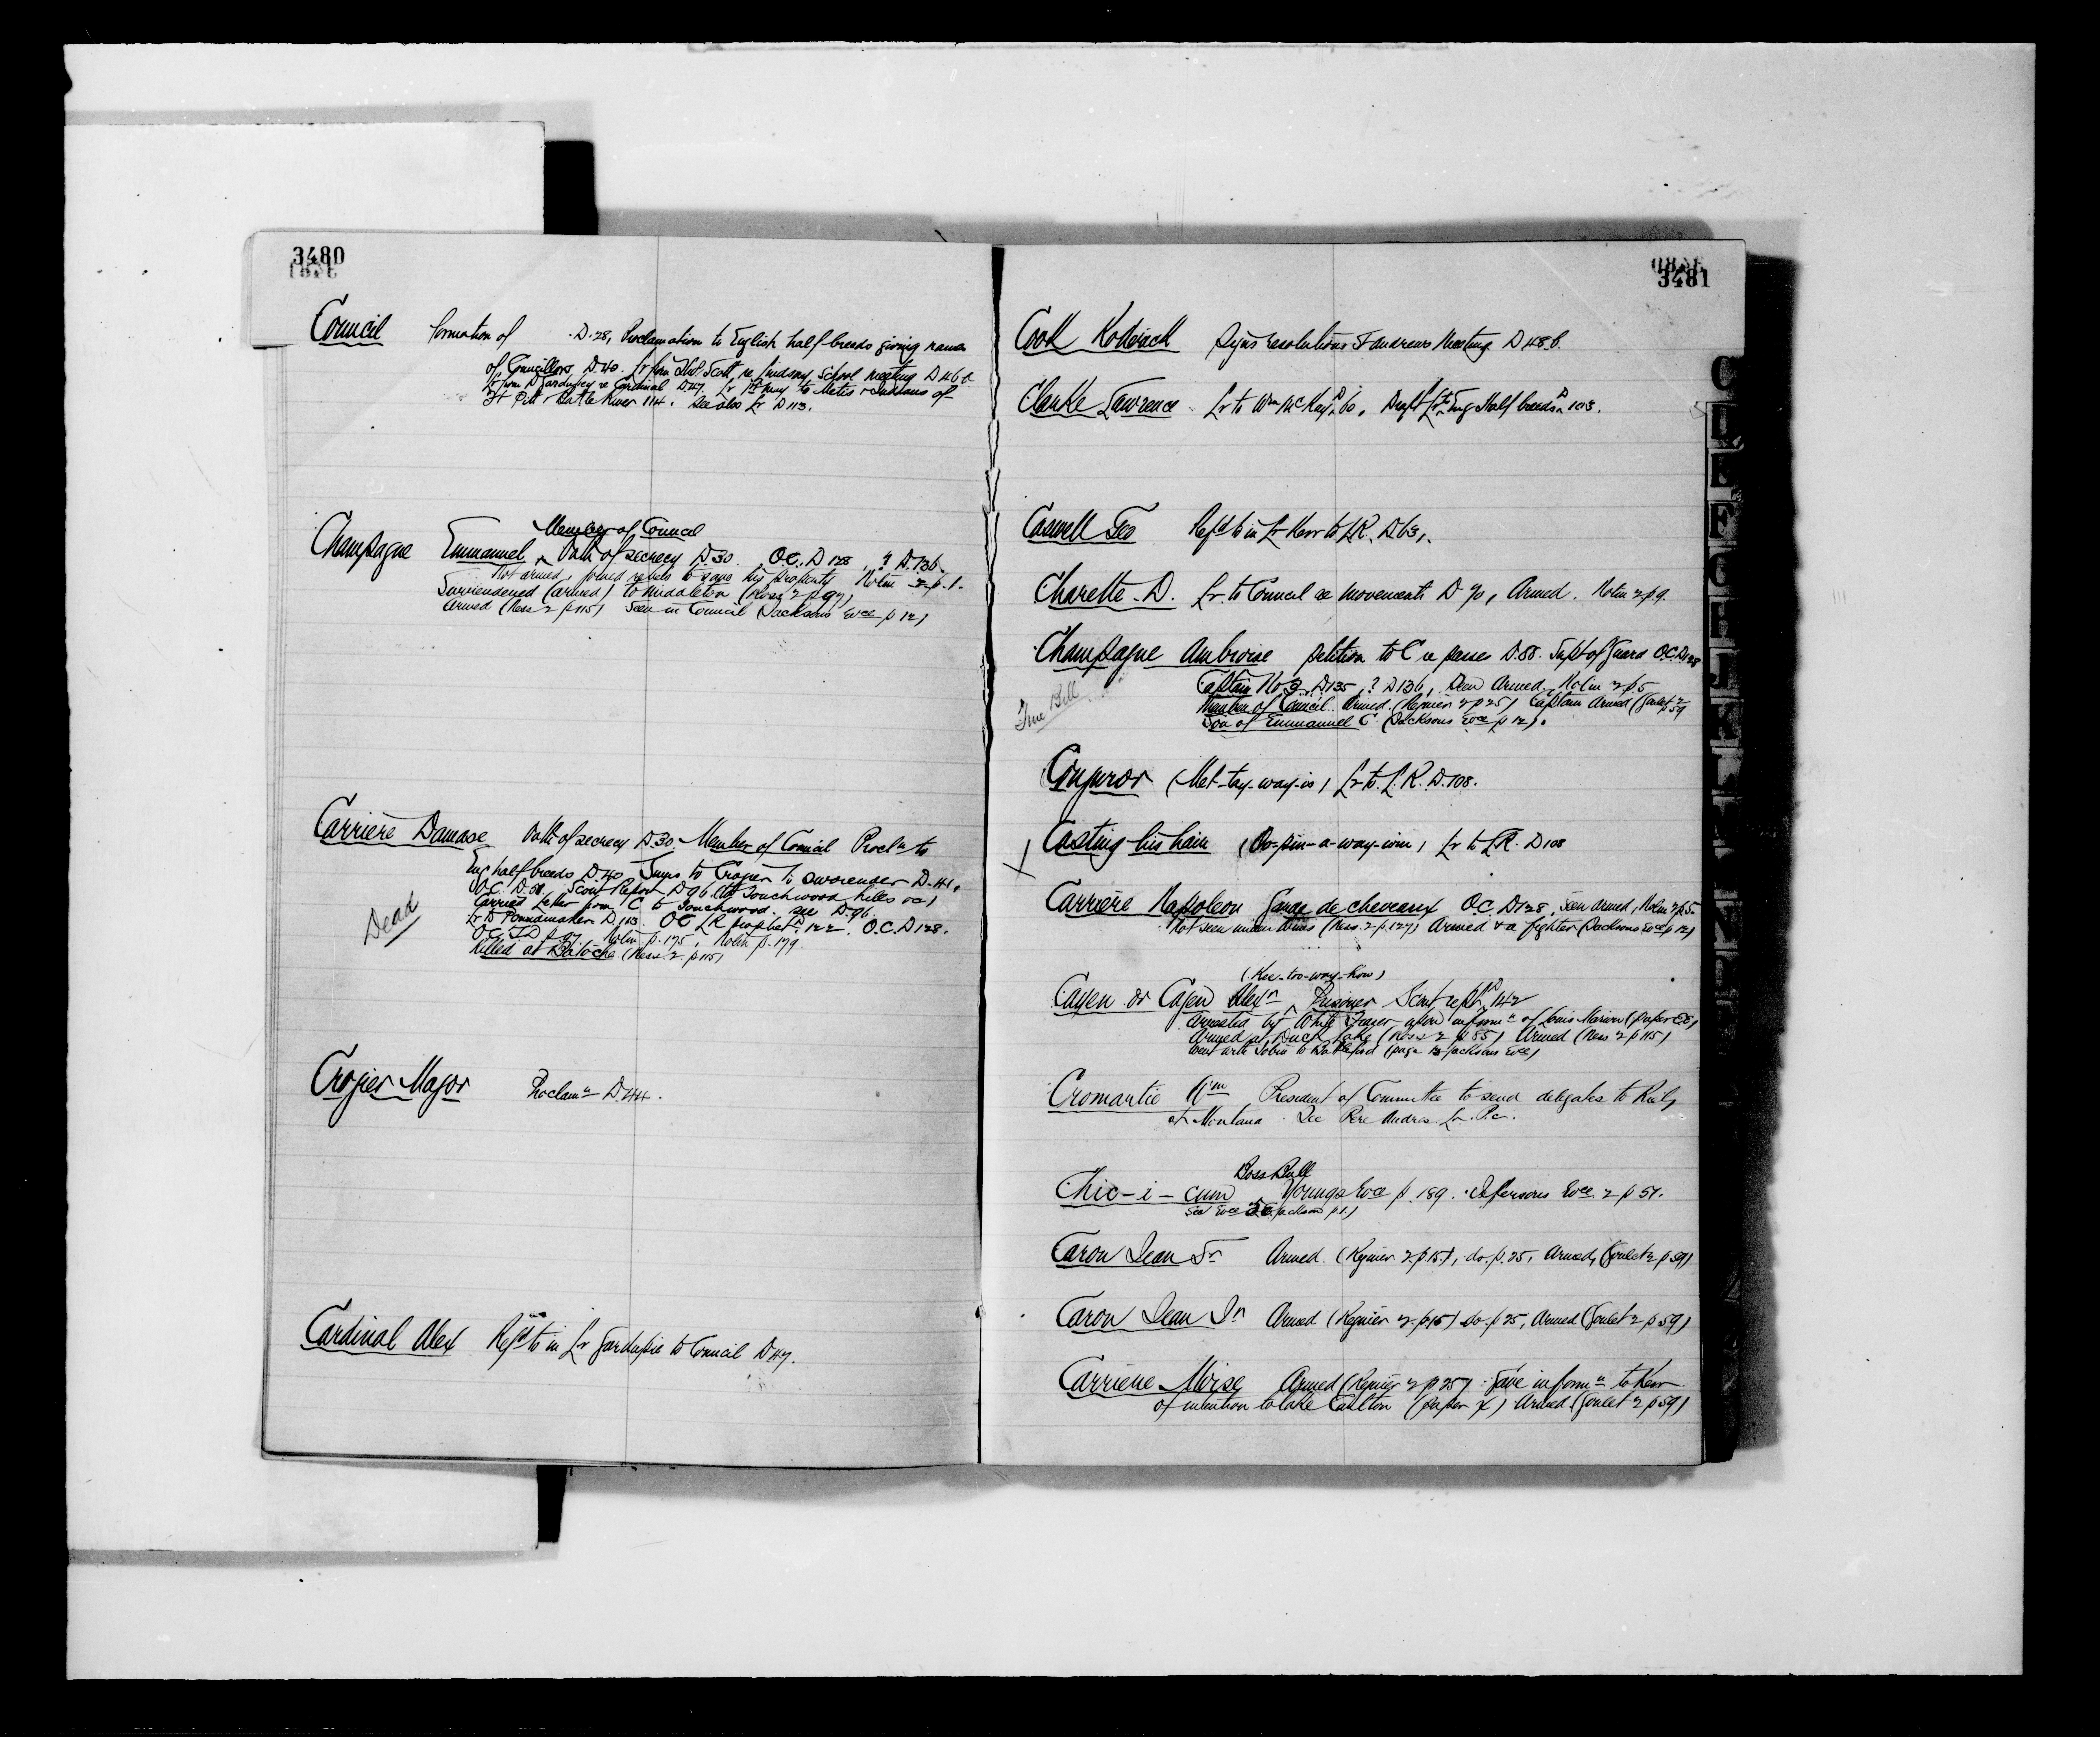 3480
Council formation of D.28, Proclamation to English half-breeds giving names
of Councillors D.40. Lr from Thos Scott re Lindsay School meeting D46a
Lr from re Cardinal D47. Lr 1st May to Metis & Indians of
Ft Pitt & Battle River 114. See also Lr D113.
Member of Council
Champagne Emmanuel Oath of secrecy D.30 O.C. D128, ? D.136
Not armed, joined rebels to save his property Nolin 2 p.1.
Surrendered (armed) to Middleton (Ness 2 p 97)
Armed (Ness 2 p 115) Seen in Council (Jacksons Evce p 12)
Carrière Damase Oath of secrecy D.30. Member of Council Procln to
Eng half breeds D40 to Crozier to surrender D.41.
O.C. D.58. Scout Report D96 (to Touchwood hills oc)
Carried Letter from C to Touchwood. see D.96.
Lr to Poundmaker D113 OC LR prophet D.122. O.C. D128.
O.C. Nolin p.175, Nolin p.179.
Killed at Batoche (Ness 2 p 115)
Dead
Crozier Major Proclamn D.44.
Cardinal Alex Refd to in Lr Gardupie to Council D47.
3481
Cook Signs resolutions St Andrews Meeting D48b.
Clarke Lawrence Lr to Wm McKay D 60, Draft Lr to Eng Half breeds D 103.
Caswell Geo Refd to in Lr Kerr to LR. D63.
Charette D. Lr. to Council re movements D 70, Armed. Nolin 2 p 9.
Champagne Ambroise petition to C re passes D.88. Supt of Guard O.C. D128
Captain No 3 D135, ? D136, Seen Armed. Nolin 2 p.5
Member of Council. Armed. (Regnier 2 p 25) Captain Armed (Goulet 2 p 59
Son of Emmanuel C (Jacksons Evce p 12).
True Bill
Conjuror (Met-tay-way-is) Lr to L.R. D.108.
Casting his hair (Oo-pin-a-way-win) Lr to LR. D108
Carrière Napoleon Garde de cheveaux O.C. D128, Seen armed, Nolin 2 p5.
Not seen under arms (Ness. 2 p.127) Armed & a fighter (Jacksons Evce p 12)
(Kee-too-way-how)
Cayen or Cayen Alexr Prisoner Scout rept D 142
Arrested by White upon informn of Louis Marion (paper EE)
Armed at Duck Lake (Ness 2 p 85) Armed (Ness 2 p 115)
Went with Jobin to Battleford (page 13 Jacksons Evce)
Cromartie Wm President of Committee to send delegates to Riel
at Montana. See Pere Andres Lr. P.C.
Boss Bull
Chic-i-cum Youngs Evce p. 189. Jefersons Evce 2 p 57.
see Evce Jackson p.1.)
Caron Jean Sr Armed. (Regnier 2. p.15), do. p. 25, Armed, (Goulet 2 p 59)
Caron Jean Jn Armed (Regnier 2. p 15) do. p 25, Armed (Goulet 2 p 59)
Carriere Moise Armed (Regnier 2 p 25) Gave informn to Kerr
of intention to take Carlton (paper X) Armed (Goulet 2 p 59)